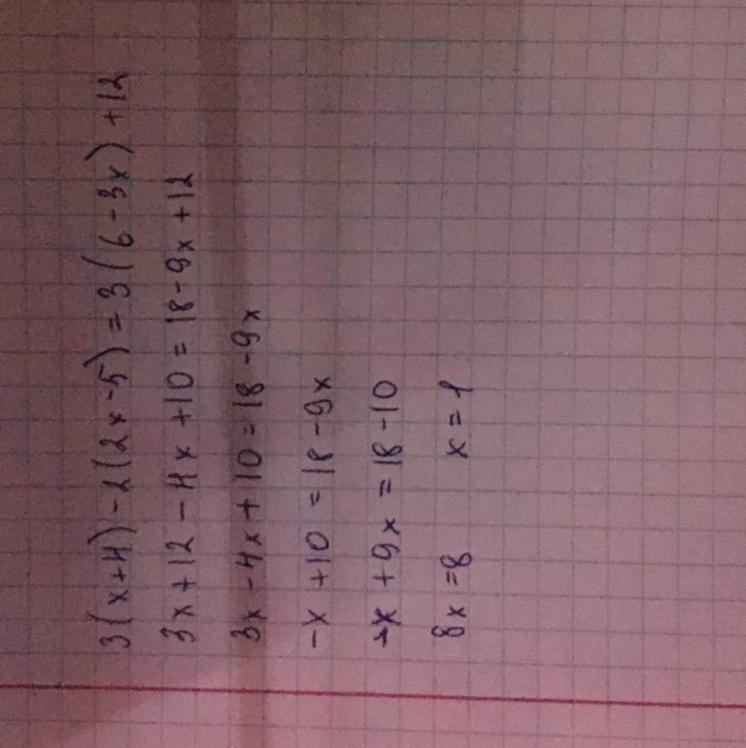 3(x+4)-2(2x-5)=3(6-3x)+12
3x+12-4x+10=18-9x+12
3x-4x+10=18-9x
-x+10=18-9x
-x+9x=18-10
8x=8 x=1